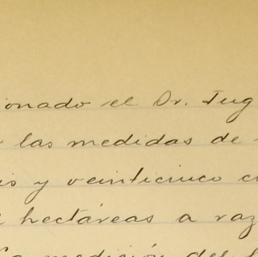 ionado el Dr. Jug
las medidas de
is y veinticinco c
hectáreas a raz
la medición del